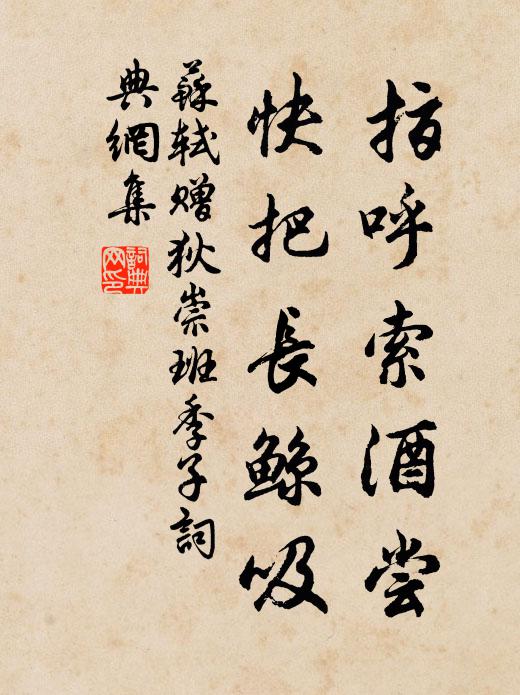 指呼索酒尝
快把長鲸吸
蘇轼赠狄崇班季子詞
典網集
詞典
网印